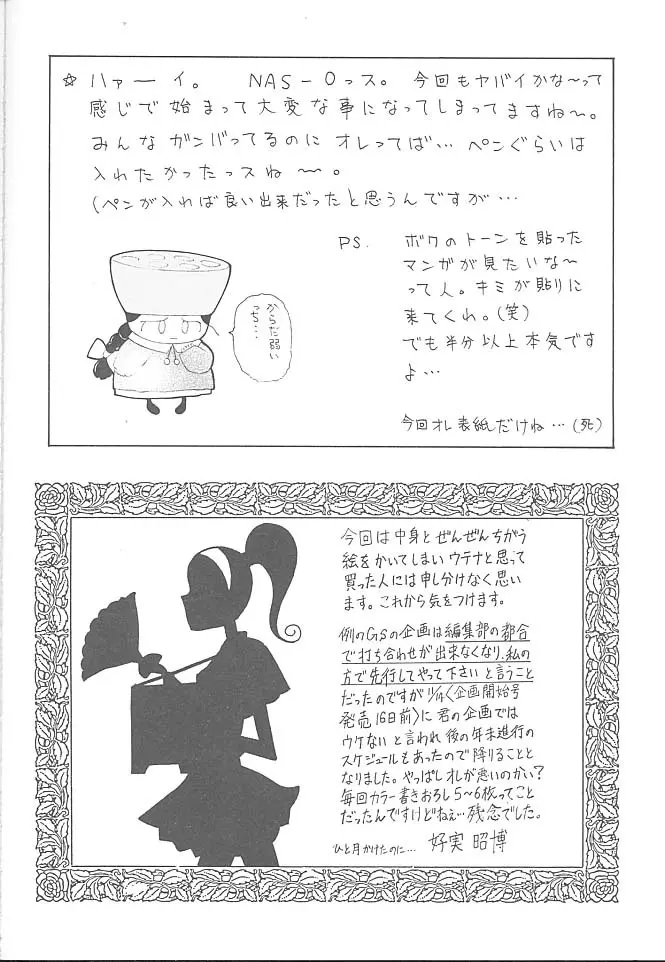 ☆ ハァーイ。 NAS-Oっス。今回もヤバイかな〜って
感じで始まって大変な事になってしまってますね〜。
みんなガンバってるのに オレってば… ペンぐらいは
入れたかったっスね 〜。
(ペンが入れば良い出来だったと思うんですが…
PS. ボクのトーンを貼った
マンガが見たいな〜
って人。キミが貼りに
来てくれ。(笑)
でも半分以上本気です
よ…
からだ弱い
っち…
今回オレ表紙だけね…(死)
今回は中身とぜんぜんちがう
絵をかいてしまいウテナと思って
買った人には申し分けなく思い
ます。これから気をつけます。
例のGSの企画は編集部の都合
で打ち合わせが出来なくなり、私の
方で先行してやって下さいと言うこと
だったのですが 11/14〈企画開始号
発売16日前〉に君の企画では
ウケないと言われ後の年末進行の
スケジュールもあったので降りることと
なりました。やっぱしオレが悪いのかい?
毎回カラー書きおろし5〜6枚ってこと
だったんですけどねぇ…残念でした。
ひと月かけたのに… 好実昭博